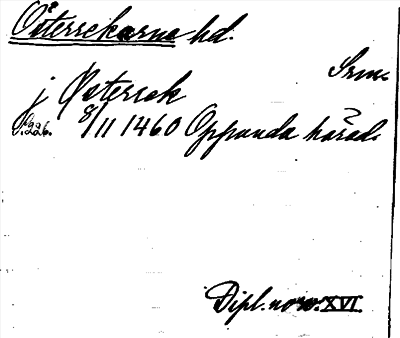 Österrekarne hd.
Srm.
j Østerrek
S. 226. 8/11 1460 Oppunda härad.
Dipl. norv. XVI.